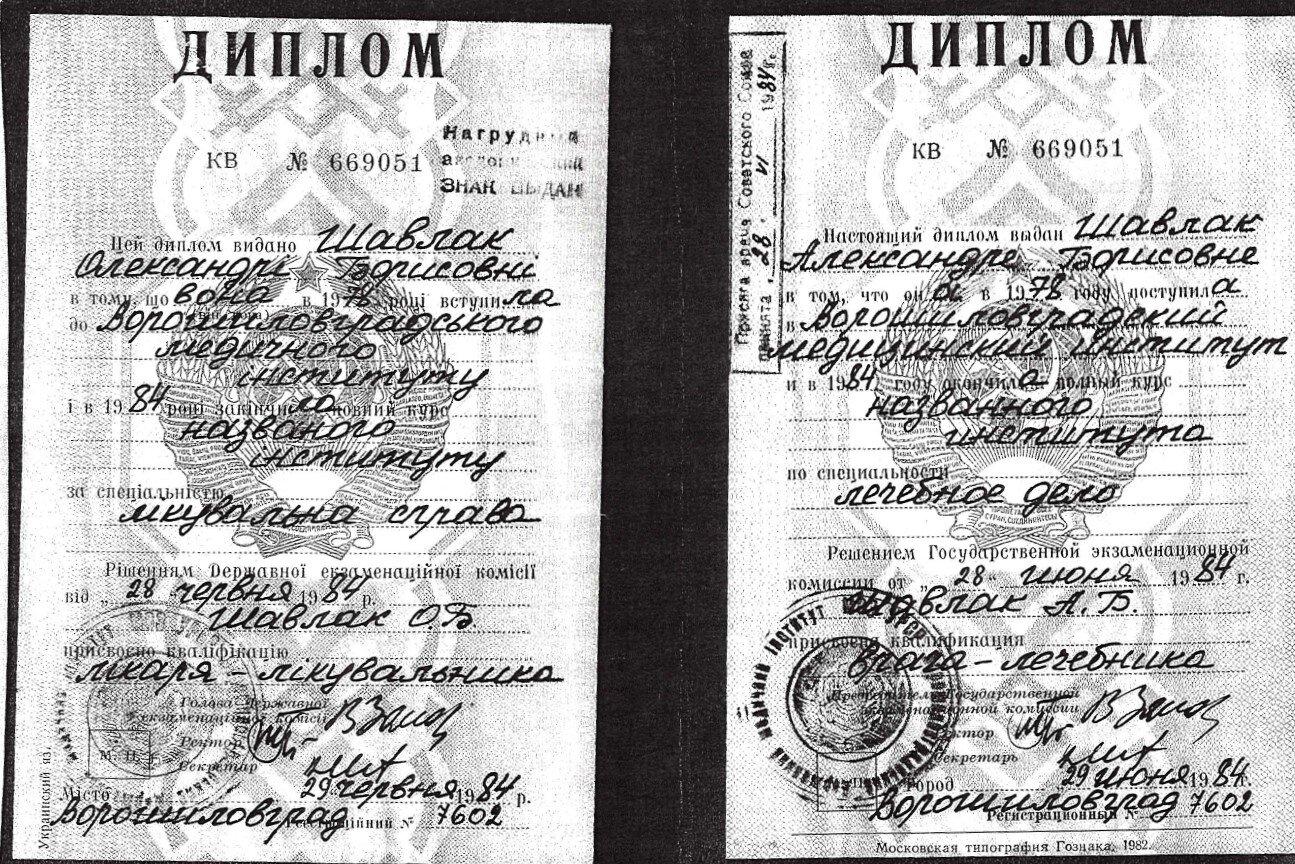 ДИПЛОМ
КВ № 669051
Нагрудный
ЗНАК ВЫДАН
Цей диплом видано Шавлак
Олександрі Борисовні
в тому, що вона в 1978 році вступила
до Ворошиловградського
медичного
інституту
і в 1984 році закінчила повний курс
названого
інституту
за спеціальністю
лікувальна справа
Рішенням Державної екзаменаційної комісії
від „28 червня 1984 р.
Шавлак О.Б
присвоєно кваліфікацію
лікаря – лікувальника
Голова Державної
екзаменаційної комісії
Ректор
Секретар
М. П.
Місто 29 червня 1984 р.
Ворошиловград Реєстраційний № 7602
Украинский яз.
ДИПЛОМ
КВ № 669051
Присяга врача Советского Союза
принята „28" VI 1984 г.
Настоящий диплом выдан Шавлак
Александре Борисовне
в том, что она в 1978 году поступила
в Ворошиловградский
медицинский институт
и в 1984 году окончила полный курс
названного
института
по специальности
лечебное дело
Решением Государственной экзаменационной
комиссии от „28" июня 1984 г.
Шавлак А.Б.
присвоена квалификация
врача – лечебника
Председатель Государственной
экзаменационной комиссии
Ректор
Секретарь
Город 29 июня 1984 г.
Ворошиловград 7602
Регистрационный №
Московская типография Гознака. 1982.